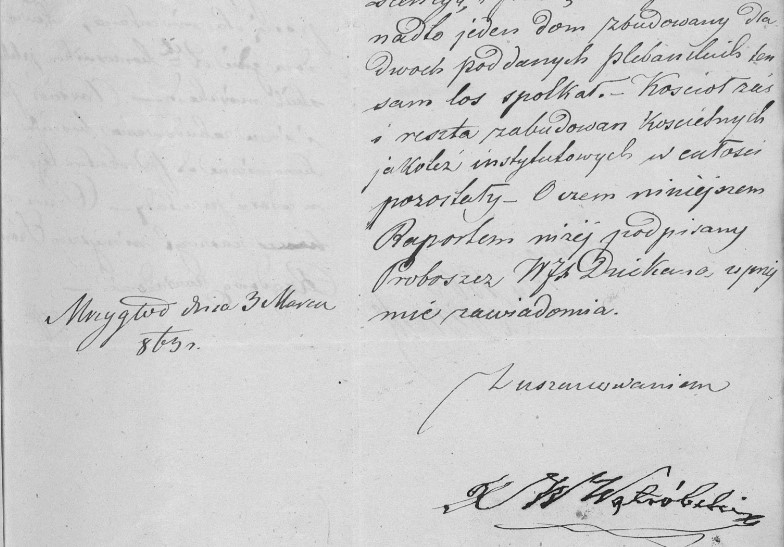 nadto jeden dom zbudowany dla
dwoch poddanych plebanskich ten
sam los spotkał. – Koscioł zas
i reszta zabudowan koscielnych
jakotez instytutowych w całosci
pozostały – O czem niniejszem
Raportem niżej podpisany
Proboszcz WJX Dziekana, uprzej
mie zawiadomia.
Mrzygłod dnia 3 Marca
863 r.
Z uszanowaniem
X W Wątróbski